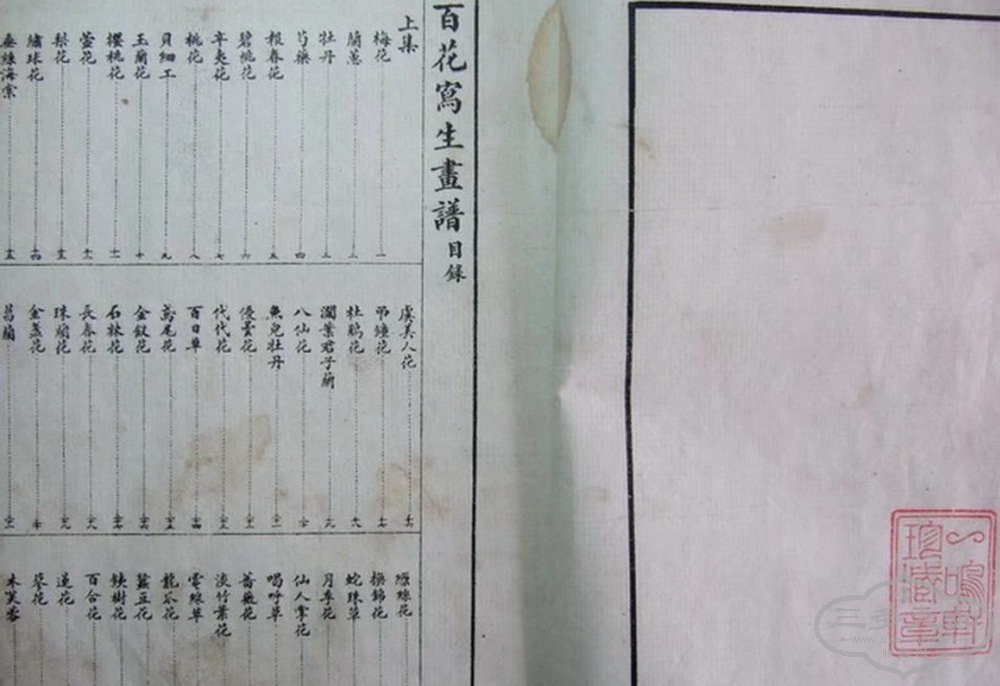 百花寫生畫譜目錄
上集
梅花 一
蘭蕙 二
牡丹 三
芍藥 四
報春花 五
碧桃花 六
辛夷花 七
桃花 八
貝細工 九
玉蘭花 十
櫻桃花 十一
萱花 十二
梨花 十三
繡球花 十四
垂絲海棠 十五
虞美人花 十六
吊鐘花 十七
杜鵑花 十八
濶葉君子蘭 十九
八仙花 二十
魚兒牡丹 二十一
優曇花 二十二
代代花 二十三
百日草 二十四
鳶尾花 二十五
金釵花 二十六
石榴花 二十七
長春花 二十八
珠蘭花 二十九
金盞花 三十
菖蘭 三十一
纒絲花
撲錦花
蛇珠草
月季花
仙人掌花
喝呼草
薔薇花
淡竹葉花
雲線草
龍瓜花
蠶豆花
鐵樹花
百合花
蓮花
葵花
木芙蓉
一鳴軒
珍藏章